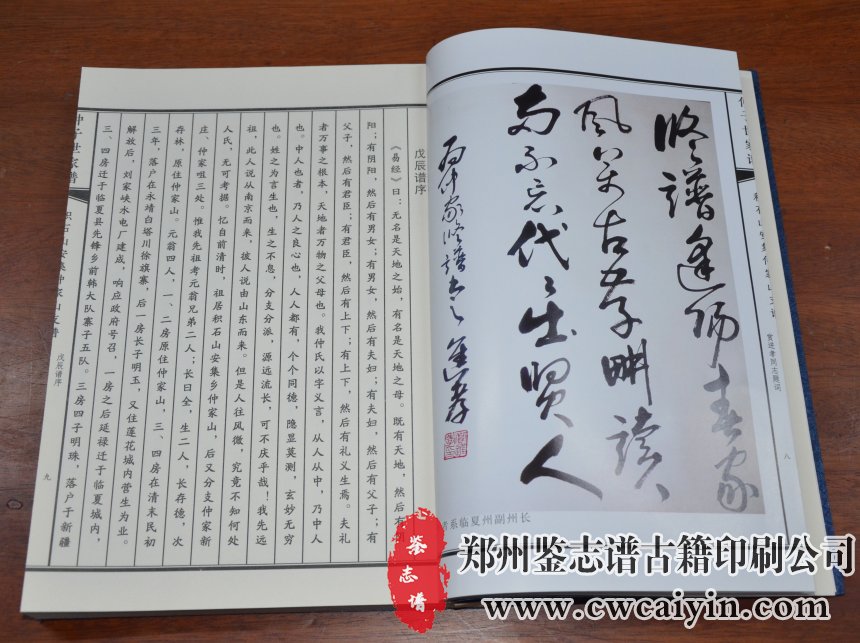 修谱逢阳春家
风万古孝耕读
而不忘代代出贤人
为仲家修谱
者系临夏州副州长
贾进孝同志题词
八
戊辰谱序
《易经》曰：无名是天地之始，有名是天地之母。既有天地，然后有阴
阳；有阴阳，然后有男女；有男女，然后有夫妇；有夫妇，然后有父子；有
父子，然后有君臣；有君臣，然后有上下；有上下，然后有礼义生焉。夫礼
者万事之根本，天地者万物之父母也。我仲氏以字义言，从人从中，乃中人
也。中人也者，乃人之良心也，人人都有，个个同德，隐显莫测，玄妙无穷
也。姓之为言生也，生之不息，分支分派，源远流长，可不庆乎哉！我先远
祖，此人说从南京而来，彼人说由山东而来。但是人往风微，究竟不知何处
人氏，无可考据。忆自前清时，祖居积石山安集乡仲家山，后又分支仲家新
庄、仲家咀三处。惟我先祖考元翁兄弟二人；长曰全，生二人，长存德，次
存林，原住仲家山。元翁四人，一、二房原住仲家山，三、四房在清末民初
三年，落户在永靖白塔川徐旗寨，后一房长子明玉，又住莲花城内营生为业。
解放后，刘家峡水电厂建成，响应政府号召，一房之后延禄迁于临夏城内，
三、四房迁于临夏县先锋乡前韩大队寨子五队。三房四子明珠，落户于新疆
仲子世家谱
积石山安集仲家山支谱
戊辰谱序
九
鉴志谱
郑州鉴志谱古籍印刷公司
www.cwcaiyin.com